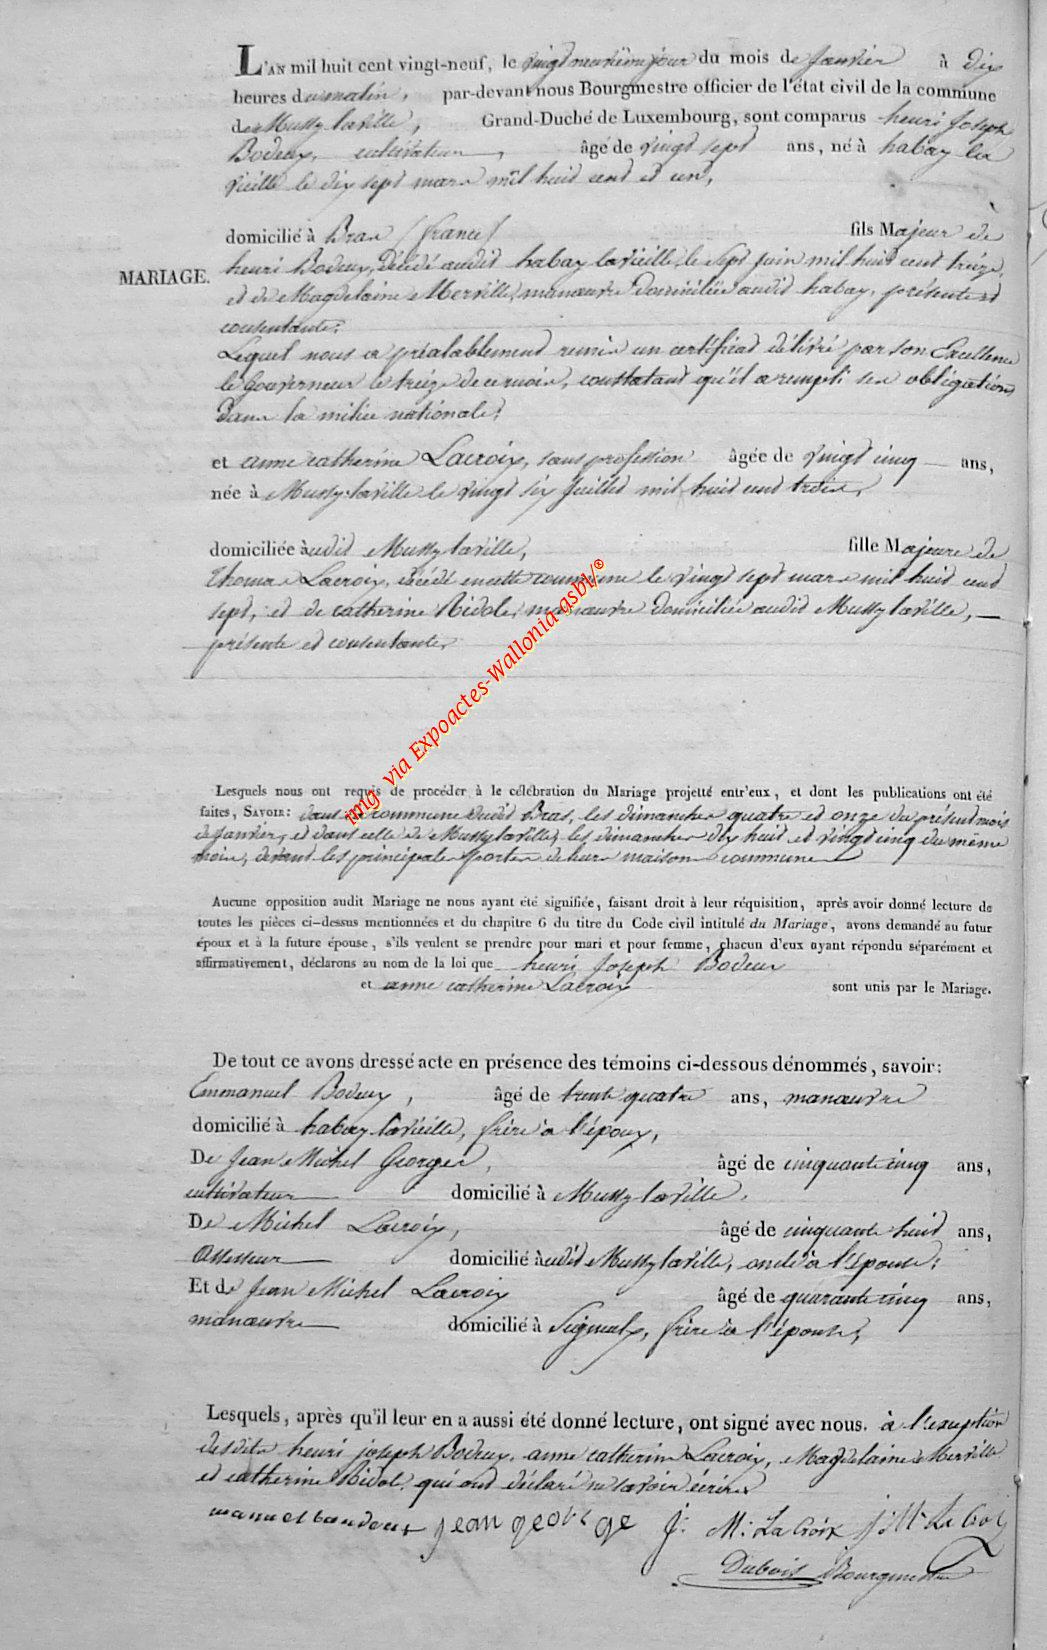 L'AN mil huit cent vingt-neuf, le vingt neuvième jour du mois de Janvier à dix
heures du matin, par-devant nous Bourgmestre officier de l'état civil de la commune
de Mussy laville, Grand-Duché de Luxembourg, sont comparus henri Joseph
Bodeux, cultivateur, âgé de vingt sept ans, né à habay la
vieille le dix sept mars mil huit cent et un,
domicilié à Bras (france) fils Majeur de
MARIAGE.
henri Bodeux, décédé audit habay lavieille, le sept juin mil huit cent treize,
et de Magdelaine Merville, manœuvre domiciliée audit habay, présente et
consentante;
Lequel nous a préalablement remis un certificat délivré par son Excellence
le Gouverneur le treize de ce mois, constatant qu'il a rempli ses obligations
dans la milice nationale;
et anne catherine Lacroix, sans profession âgée de vingt cinq ans,
née à Mussy-laville le vingt six Juillet mil huit cent trois,
domiciliée audit Mussy laville, fille Majeure de
Thomas Lacroix, décédé en cette commune le vingt sept mars mil huit cent
sept, et de catherine Ridole, manœuvre domiciliée audit Mussy laville,
présente et consentante,
img via Expoactes-Wallonia-asbl/®
Lesquels nous ont requis de procéder à le célébration du Mariage projetté entr'eux, et dont les publications ont été
faites, SAVOIR: dans commune dudit Bras, les dimanches quatre et onze du présent mois
de Janvier, et dans celle de Mussy laville, les dimanches dix huit et vingt cinq du même
mois, devant les principales portes de leurs maisons communes
Aucune opposition audit Mariage ne nous ayant été signifiée, faisant droit à leur réquisition, après avoir donné lecture de
toutes les pièces ci-dessus mentionnées et du chapitre 6 du titre du Code civil intitulé du Mariage, avons demandé au futur
époux et à la future épouse, s'ils veulent se prendre pour mari et pour femme, chacun d'eux ayant répondu séparément et
affirmativement, déclarons au nom de la loi que henri Joseph Bodeux
et anne catherine Lacroix sont unis par le Mariage.
De tout ce avons dressé acte en présence des témoins ci-dessous dénommés, savoir:
Emmanuel Bodeux, âgé de trente quatre ans, manœuvre
domicilié à habay lavieille, frère à l'époux,
De Jean Michel Georges, âgé de cinquante cinq ans,
cultivateur domicilié à Mussy laville.
De Michel Lacroix, âgé de cinquante huit ans,
Assesseur domicilié audit Mussy laville, oncle à l'épouse;
Et de Jean Michel Lacroix âgé de quarante cinq ans,
manœuvre domicilié à Signeulx, frère à l'épouse;
Lesquels, après qu'il leur en a aussi été donné lecture, ont signé avec nous. à l'exeption
desdits henri joseph Bodeux, anne catherine Lacroix, Magdelaine Merville
et catherine Ridole, qui ont déclaré ne savoir écrire.
jean george J: M: La Croix J: M: La Croi
Dubois Bourgmestre